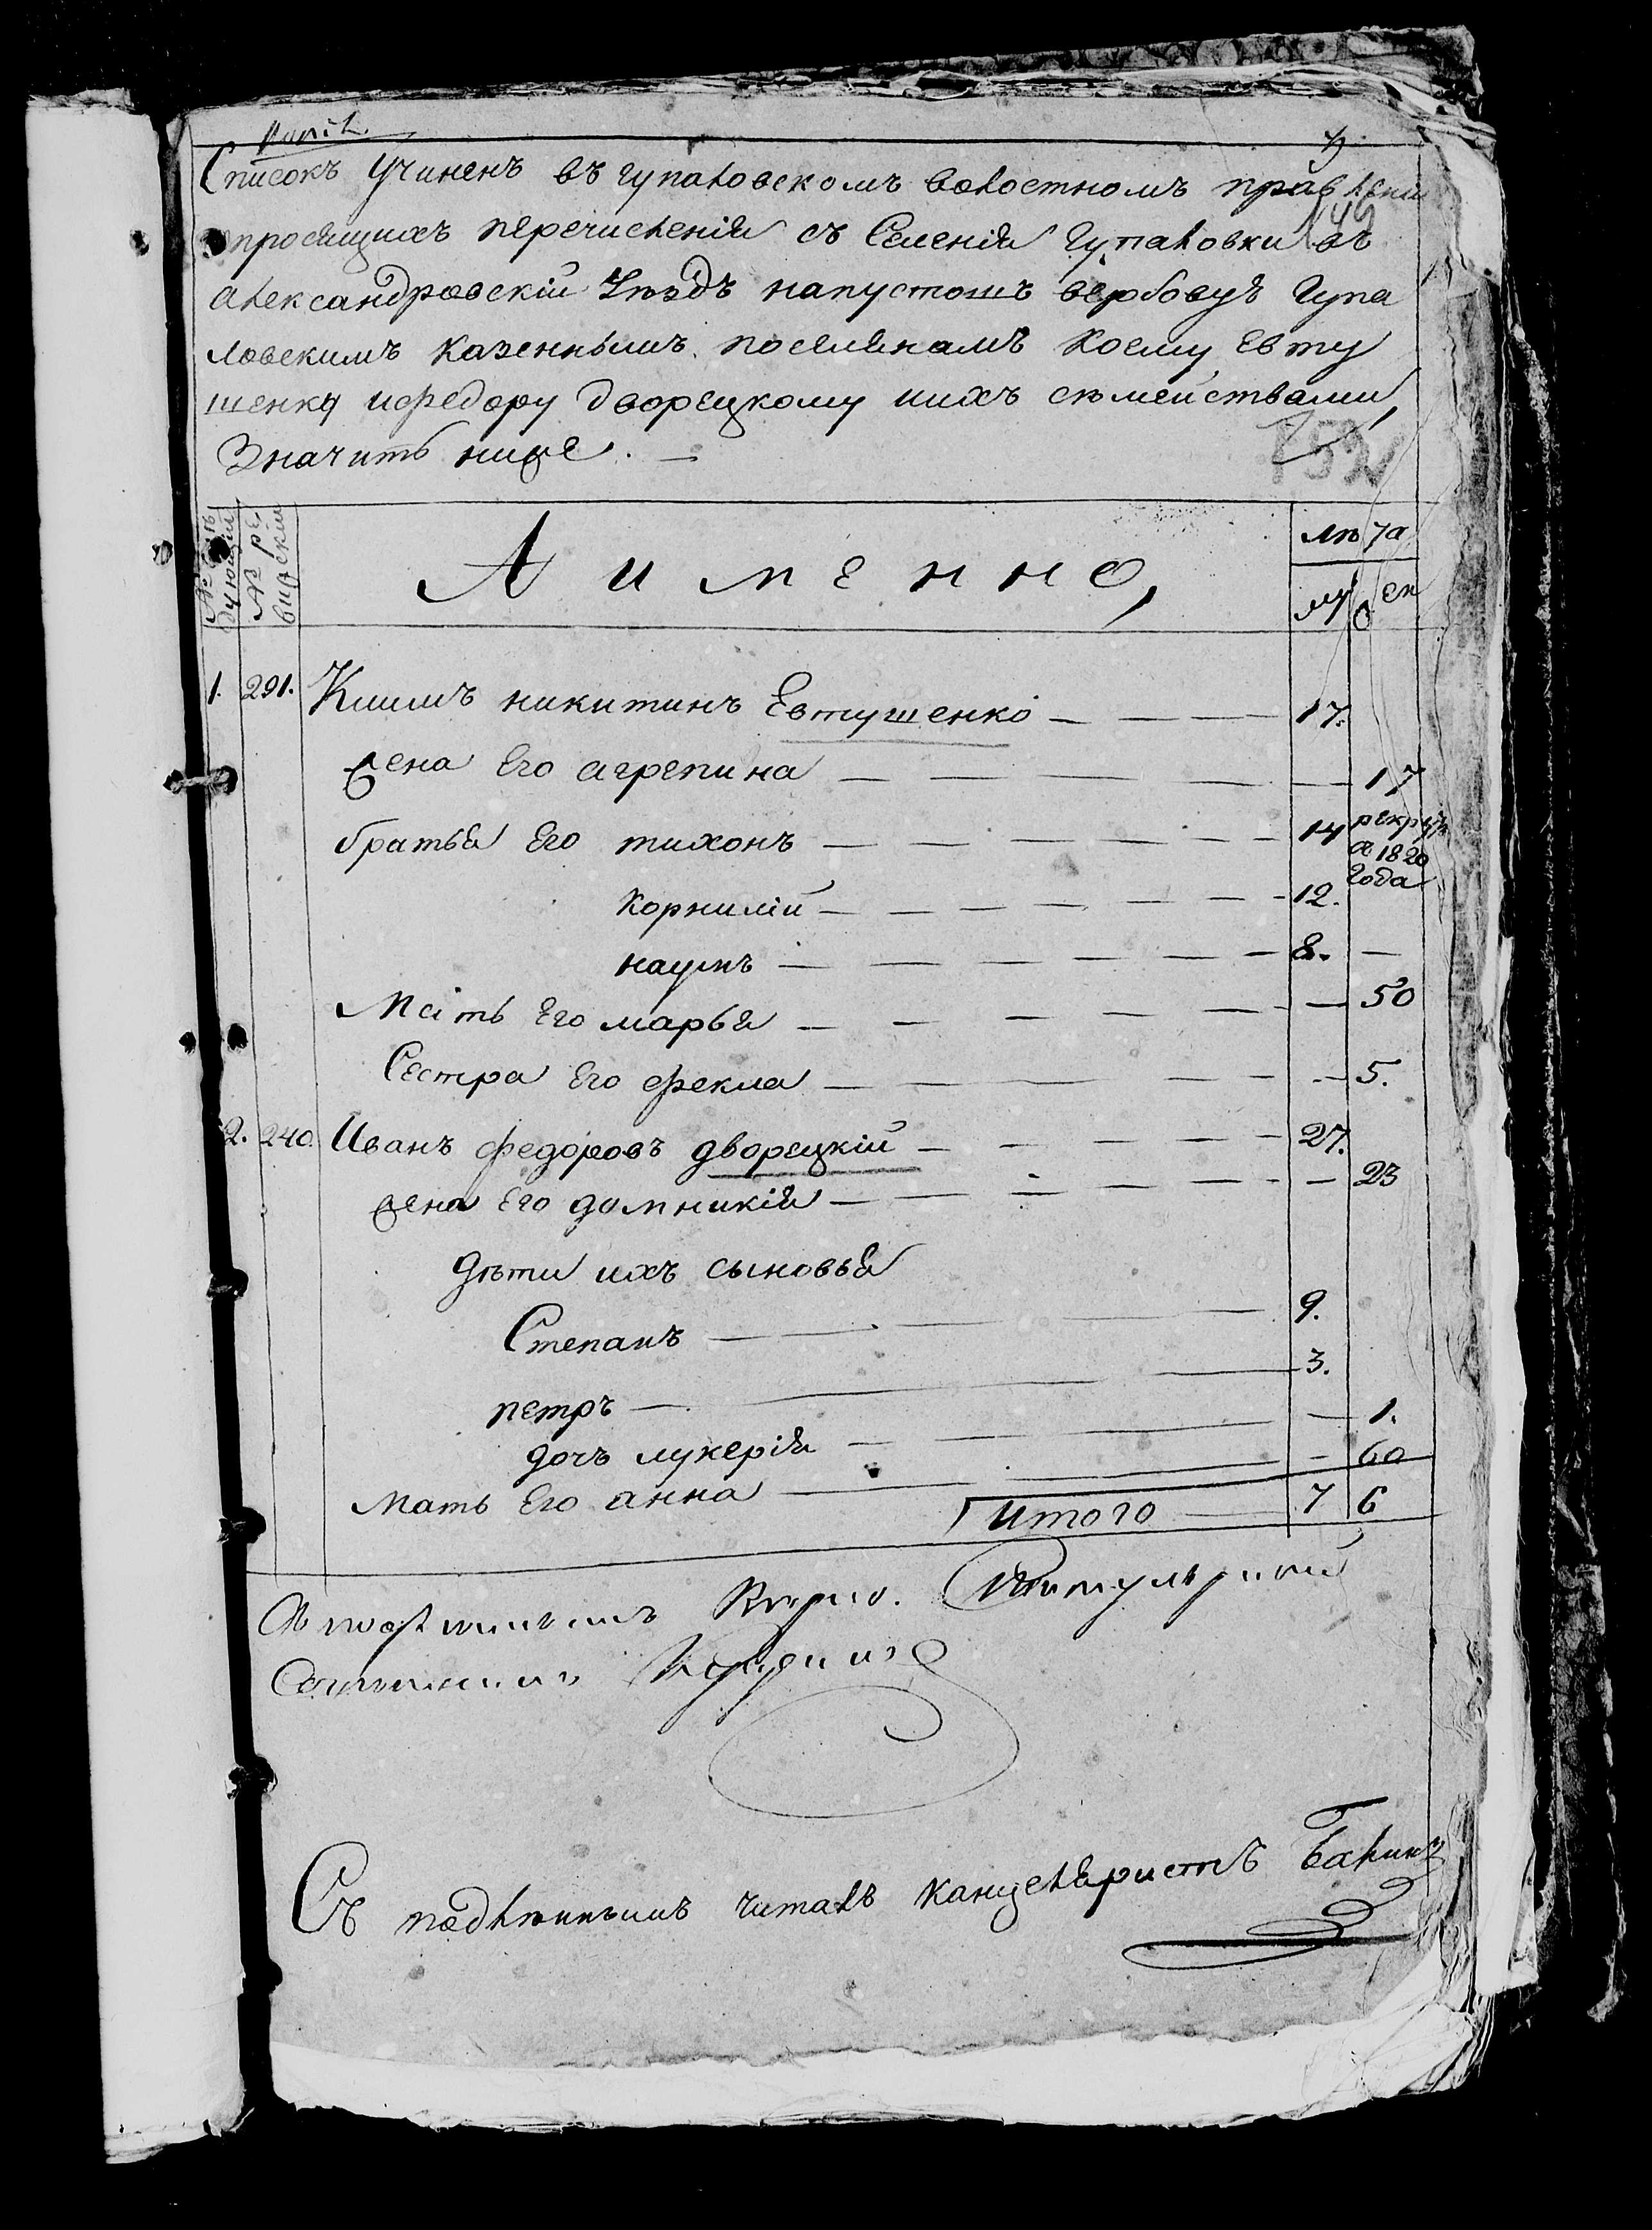 копіѣ.
Списокъ Учиненъ въ гупаловскомъ волостномъ правлени
опросящихъ перечисленія съ Селенія Гупаловки въ
александровскій Уѣздъ напустошъ вербовуъ Гупа
ловскимъ казеннымъ поселянамъ Коему Евту
шенку ифедору дворецкому иихъ сѣмействами,
Значитъ ниже. —
152
№ слѣ
дующій
№ ре
визскій
А именно,
лѣта
му жен
1. 291. Климъ никитинъ Евтушенко — 17.
жена Его агрепина — 17
братья Его тихонъ — 14 рекрутъ
в 1820
года
Корнилій — 12.
наумъ — 8. —
Мать Его марья — 50
Сестра Его фекла — 5.
2. 240. Иванъ федоровъ дворецкій — 27.
жена Его домникія — 23
дѣти ихъ сыновья
Степанъ — 9.
петръ — 3.
дочъ лукерія — 1.
Мать Его анна — 60
Итого — 7 6
Съ подлѣннымъ читалъ канцеляристъ